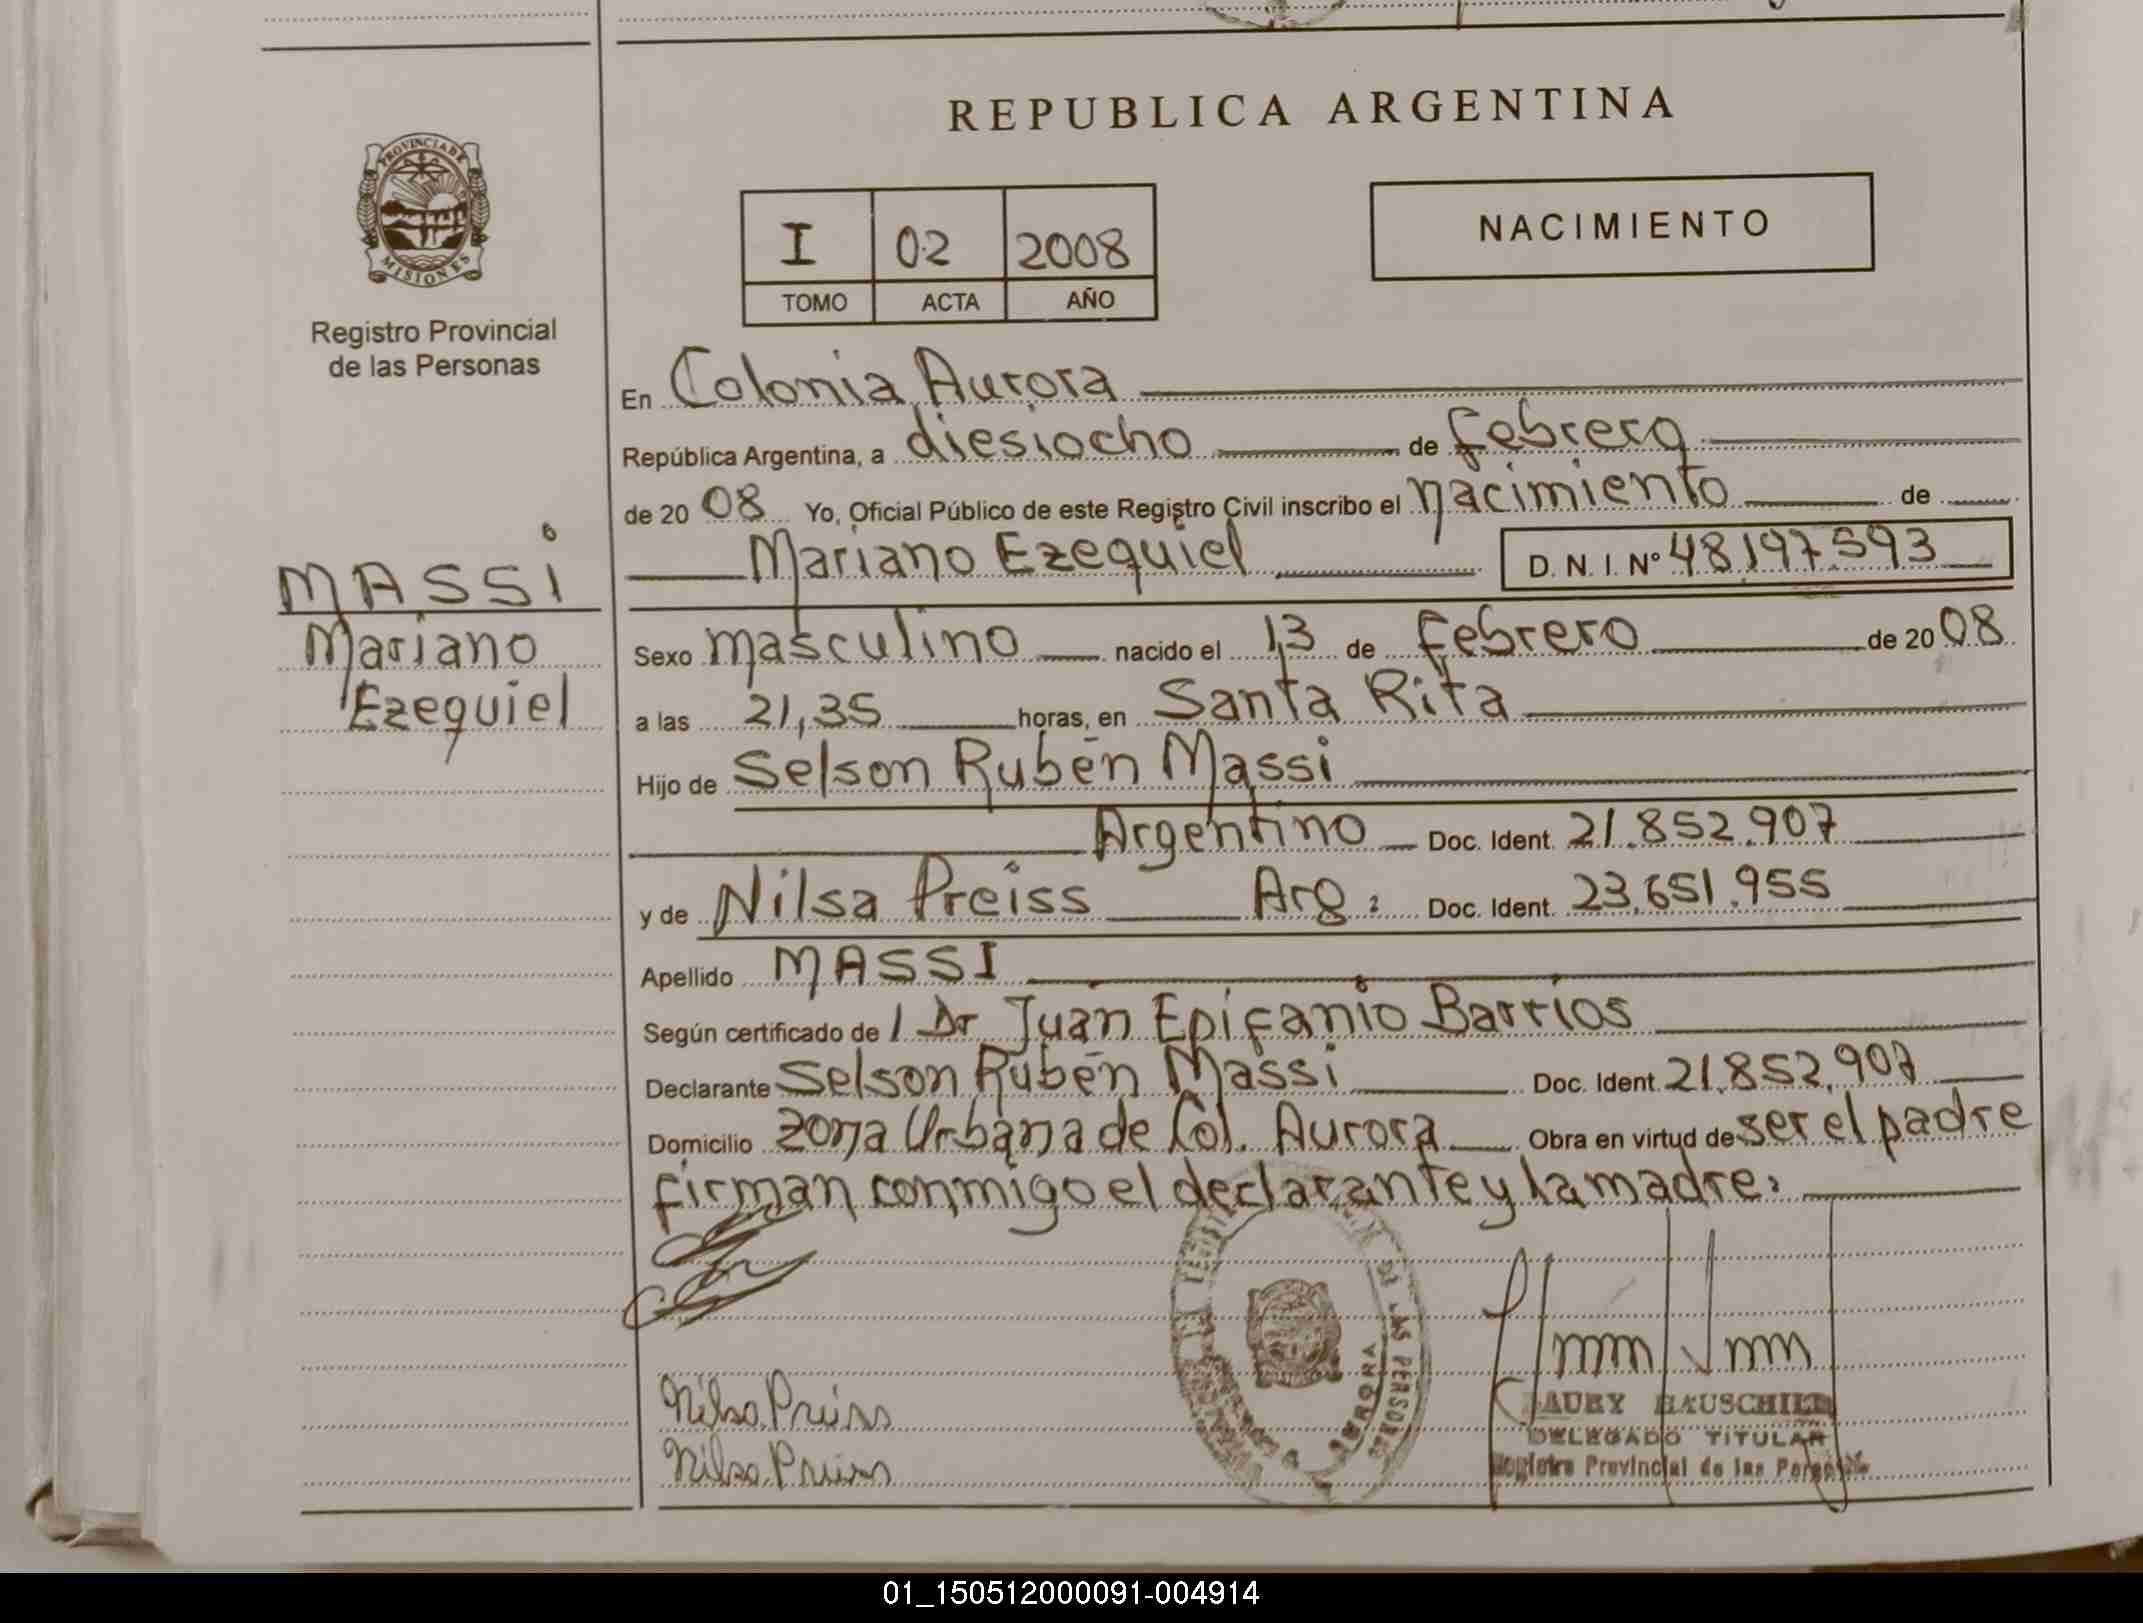 REPUBLICA ARGENTINA
PROVINCIA DE
MISIONES
Registro Provincial
de las Personas
I 02 2008
TOMO ACTA AÑO
NACIMIENTO
En Colonia Aurora
República Argentina, a diesiocho de febrero
de 20 08 Yo, Oficial Público de este Registro Civil inscribo el nacimiento de
Mariano Ezequiel D. N. I. Nº 48.197.593
MASSi
Mariano
Ezequiel
Sexo masculino nacido el 13 de febrero de 20 08
a las 21,35 horas, en Santa Rita
Hijo de Selson Rubén Massi
Argentino Doc. Ident. 21.852.907
y de Nilsa Preiss Arg: Doc. Ident. 23.651.955
Apellido MASSI
Según certificado de / Dr Juan Epifanio Barrios
Declarante Selson Rubén Massi Doc. Ident. 21.852.907
Domicilio zona Urbana de Col. Aurora Obra en virtud de ser el padre
firman conmigo el declarante y la madre.
DE LAS PERSONAS
AURORA
Nilsa Preiss
Nilsa Preiss
LAURY HAUSCHILD
DELEGADO TITULAR
Registro Provincial de las Personas
01_150512000091-004914